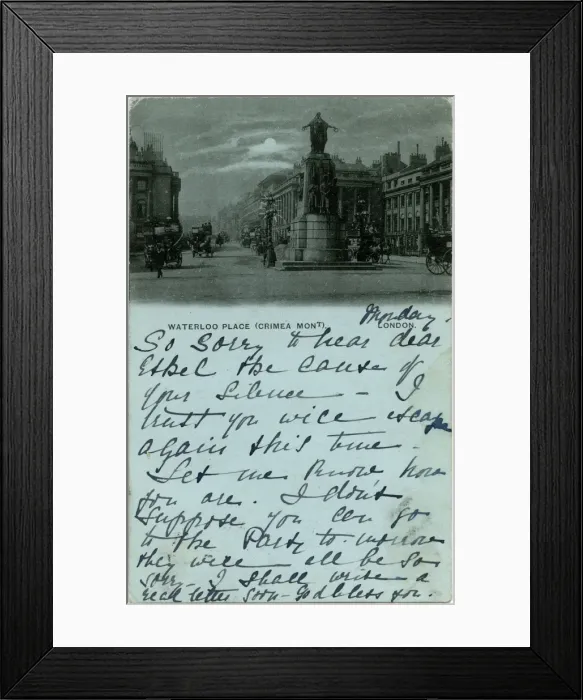 WATERLOO PLACE (CRIMEA MONT) LONDON.
Monday.
So sorry to hear dear
Ethel the cause of
your silence - I
trust you will escape
again this time -
Let me know how
you are. I don't
suppose you can go
to the Party to-morrow
they will all be so
sorry - I shall write a
real letter soon - God bless you.